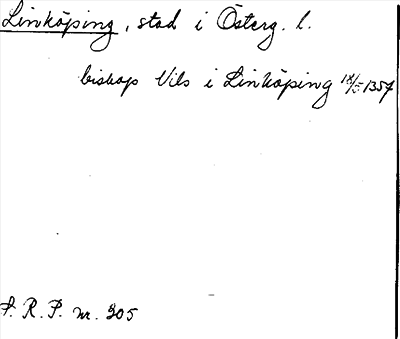 Linköping, stad i Österg. l.
biskop Nils i Linköping 18/5 1357
S. R. P. nr. 305